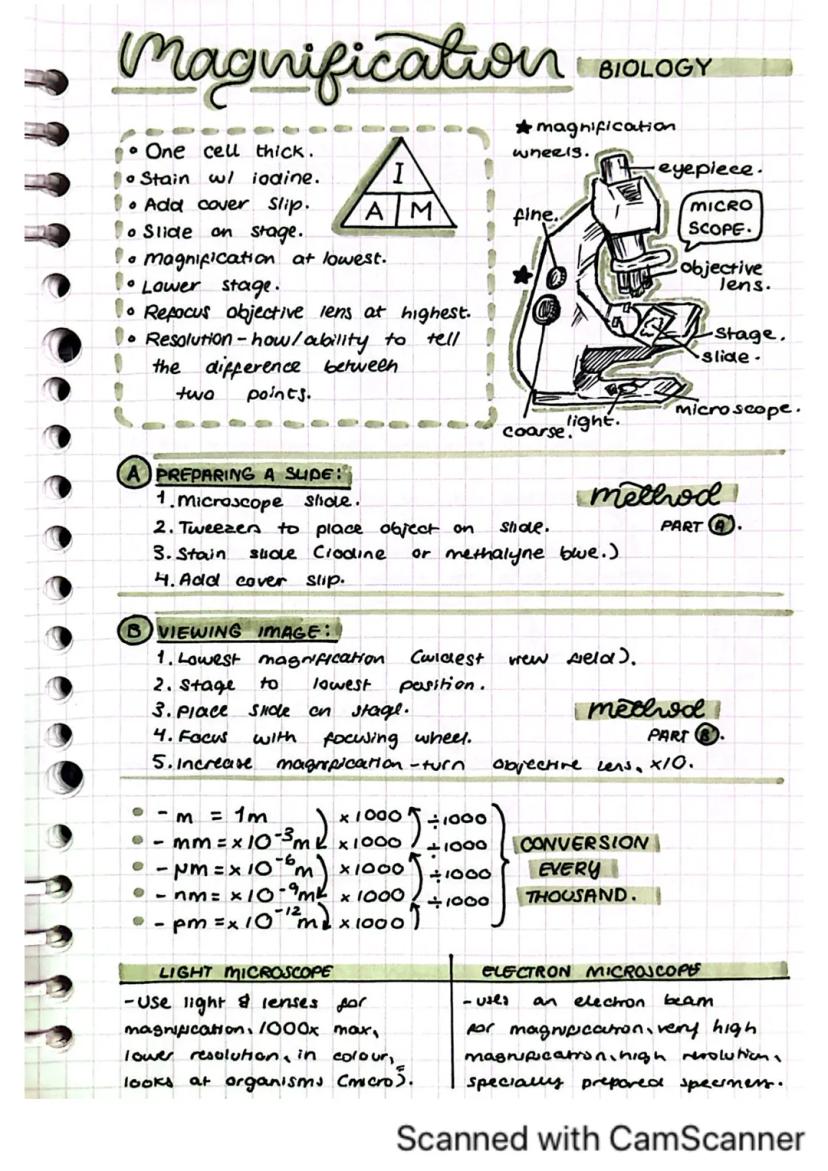 Magnification BIOLOGY
• One cell thick.
• Stain w/ iodine.
• Add cover slip.
• Slide on stage.
• magnification at lowest.
• Lower stage.
• Refocus objective lens at highest.
• Resolution - how/ability to tell
the difference between
two points.
I
A M
★ magnification
wheels.
eyepiece.
fine.
MICRO
SCOPE.
★
objective
lens.
stage.
slide.
microscope.
light.
coarse.
A PREPARING A SLIDE:
1. Microscope slide.
method
2. Tweezers to place object on slide.
PART A.
3. Stain slide (iodine or methalyne blue.)
4. Add cover slip.
B VIEWING IMAGE:
1. Lowest magnification (widest view field).
2. Stage to lowest position.
3. Place slide on stage.
method
4. Focus with focusing wheel.
PART B.
5. Increase magnification - turn objective lens, x10.
- m = 1m x1000 ÷1000
- mm = x10⁻³m x1000 ÷1000
- µm = x10⁻⁶m x1000 ÷1000
- nm = x10⁻⁹m x1000 ÷1000
- pm = x10⁻¹²m x1000
CONVERSION
EVERY
THOUSAND.
LIGHT MICROSCOPE
- Use light & lenses for
magnification, 1000x max,
lower resolution, in colour,
looks at organisms (micro).
ELECTRON MICROSCOPE
- uses an electron beam
for magnification, very high
magnification, high resolution,
specially prepared specimen.
Scanned with CamScanner